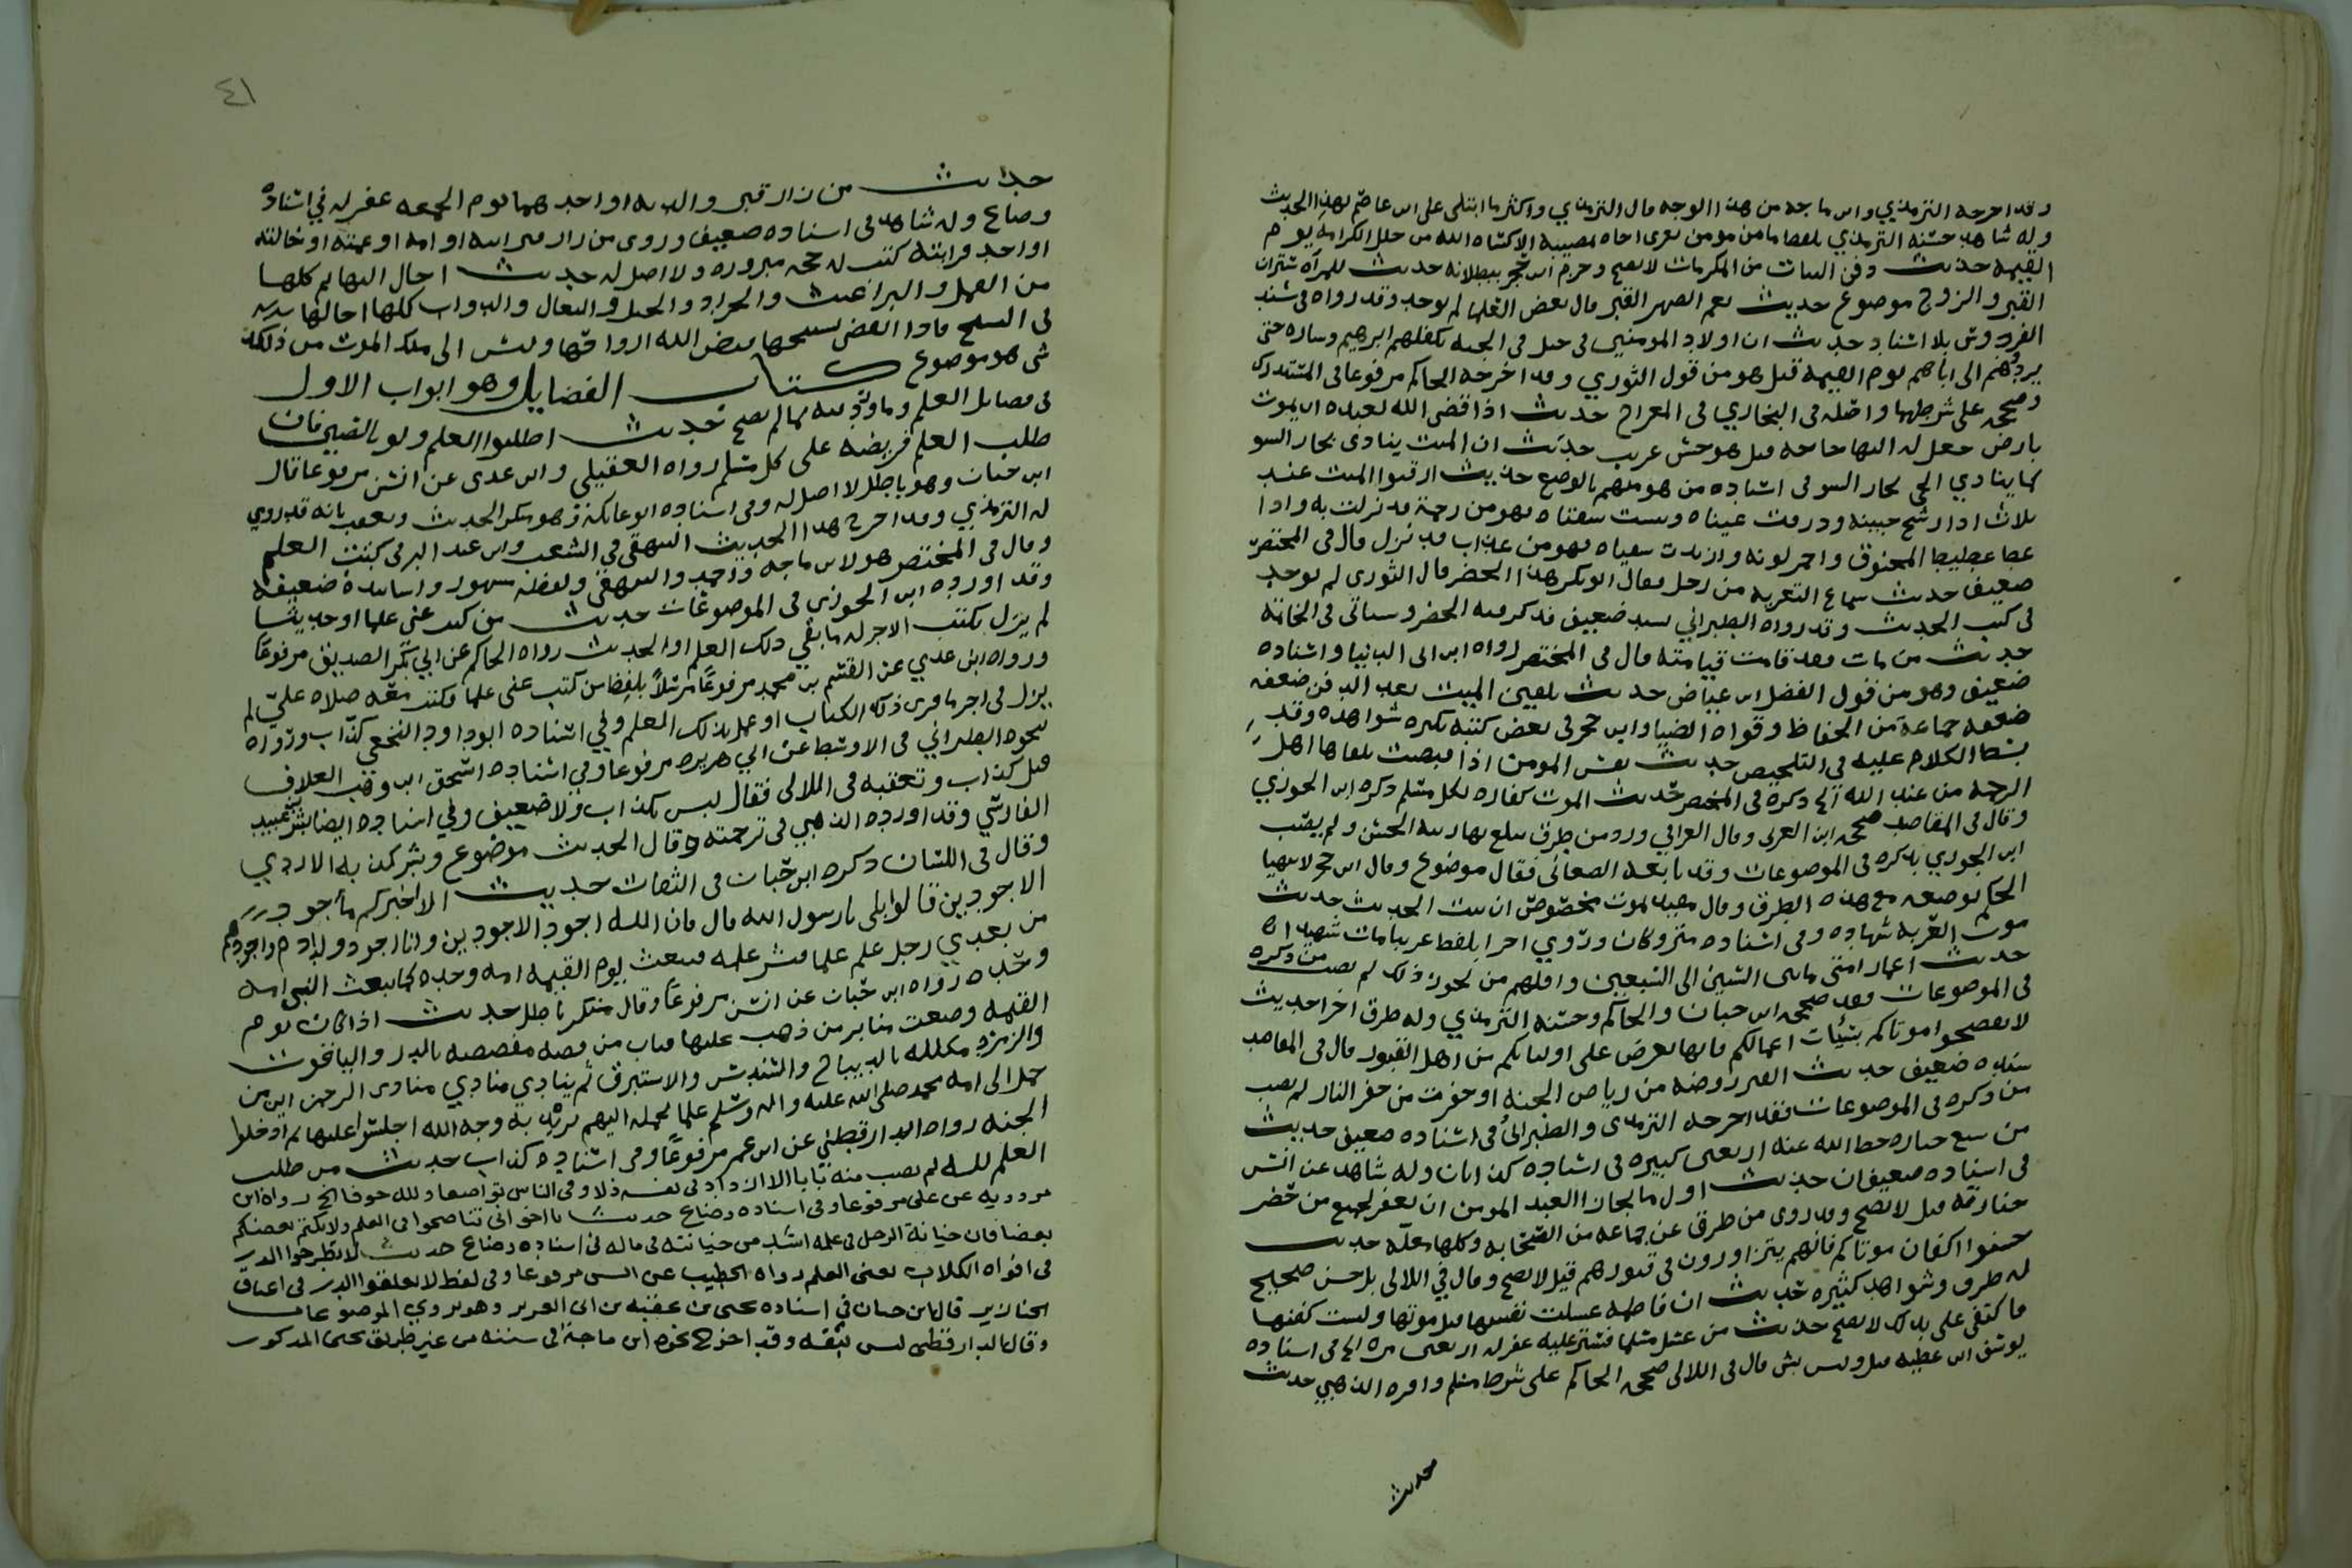 وقد اخرجه الترمذي وابن ماجه من هذا الوجه قال الترمذي واكثر ما ابتلى على ابن عاصم بهذا الحديث
وله شاهد حسنه الترمذي بلفظ ما من مومن يعزى اخاه بمصيبة الا كساه الله من حلل الكرامه يوم
القيمه حديث دفن البنات من المكرمات لا يصح وجزم ابن حجر ببطلانه حديث للمرآه ستران
القبر والزوج موضوع حديث نعم الصهر القبر قال بعض العلما لم يوجد وقد رواه في مسند
الفردوس بلا اسناد حديث ان اولاد المومنين في جبل في الجنه يكفلهم ابرهيم وساره حتى
يردوهم الى اباهم يوم القيمه قيل هو من قول الثوري وقد اخرجه الحاكم مرفوعا في المستدرك
وصححه على شرطهما واصله في البخاري في المعراج حديث اذا قضى الله لعبده ان يموت
بارض جعل له اليها حاجه قيل هو حسن غريب حديث ان الميت ينادى بجار السو
كما ينادي الحي بجار السو في اسناده من هو متهم بالوضع حديث ارقبوا الميت عند
ثلاث اذا رشح جبينه وذرفت عيناه ويبست شفتاه فهو من رحمة قد نزلت به واذا
غط غطيط المخنوق واحمر لونه وازبدت شفتاه فهو من عذاب قد نزل قال في المختصر
ضعيف حديث سماع التعزيه من رجل فقال ابو بكر هذا الخضر قال النووي لم يوجد
في كتب الحديث وقد رواه الطبراني بسند ضعيف فذكر فيه الخضر وسياتى في الخاتمة
حديث من مات فقد قامت قيامته قال في المختصر رواه ابن ابي الدنيا واسناده
ضعيف وهو من قول الفضل ابن عياض حديث تلقين الميت بعد الدفن ضعفه
ضعفه جماعة من الحفاظ وقواه الضيا وابن حجر في بعض كتبه بكثره شواهده وقد
بسط الكلام عليه في التلخيص حديث نفس المومن اذا قبضت تلقاها اهل
الرحمه من عند الله الخ ذكره في المختصر حديث الموت كفاره لكل مسلم ذكره ابن الجوزي
وقال في المقاصد صححه ابن العربي وقال العراقي ورد من طرق يبلغ بها رتبة الحسن ولم يصب
ابن الجوزي بذكره في الموضوعات وقد تابعه الصغاني فقال موضوع وقال ابن حجر لا يتهيا
الحكم بوضعه مع هذه الطرق وقال يحمل لموت مخصوص ان ثبت الحديث حديث
موت الغربة شهاده وفي اسناده متروكان وروي اخرا بلفظ غريبا مات شهيدا الخ
حديث اعمار امتي مابين الستين الى السبعين واقلهم من يجوز ذلك لم يصب من ذكره
في الموضوعات فقد صححه ابن حبان والحاكم وحسنه الترمذي وله طرق اخر حديث
لا تفضحوا موتاكم بسيئات اعمالكم فانها تعرض على اوليائكم من اهل القبور قال في المقاصد
سنده ضعيف حديث القبر روضه من رياض الجنه او حفرت من حفر النار لم يصب
من ذكره في الموضوعات فقد اخرجه الترمذي والطبراني وفي اسناده ضعيف حديث
من تبع جنازه حط الله عنه اربعين كبيره في اسناده كذابان وله شاهد عن انس
في اسناده ضعيفان حديث اول ما يجازا العبد المومن ان يغفر لجميع من حضر
جنازته قيل لا يصح وقد روى من طرق عن جماعه من الصحابه وكلها معله حديث
حسنوا اكفان موتاكم فانهم يتزاورون في قبورهم قيل لا يصح وقال في اللالى بل حسن صحيح
له طرق وشواهد كثيره حديث ان فاطمه غسلت نفسها قبل موتها ولبست كفنها
فاكتفى علي بذلك لا يصح حديث من غسل مسلما فستر عليه غفر له اربعين مره الخ في اسناده
يوسف ابن عطيه قيل وليس بشى قال في اللالى صححه الحاكم على شرط مسلم واقره الذهبي حديث
حديث
٤١
حديث من زار قبر والديه او احدهما يوم الجمعه غفر له في اسناده
وضاع وله شاهد في اسناده ضعيف وروى من زار قبر ابيه او امه او عمته او خالته
او احد قرابته كتب له حجه مبروره ولا اصل له حديث اجال البهايم كلها
من القمل والبراغيث والجراد والخيل والبغال والدواب كلها اجالها
في التسبيح فاذا انقضى تسبيحها قبض الله ارواحها وليس الى ملك الموت من ذلك
شى هو موضوع كتاب الفضايل وهو ابواب الاول
في فضايل العلم وما ورد فيه مما لم يصح حديث اطلبوا العلم ولو بالصين فان
طلب العلم فريضه على كل مسلم رواه العقيلي وابن عدى عن انس مرفوعا قال
ابن حبان وهو باطل لا اصل له وفي اسناده ابو عاتكه وهو منكر الحديث وتعقب بانه قد روى
له الترمذي وقد اخرج هذا الحديث البيهقي في الشعب وابن عبد البر في كتب العلم
وقال في المختصر هو لابن ماجه واحمد والبيهقي ولفظه مشهور واسانيده ضعيفه
وقد اورده ابن الجوزي في الموضوعات حديث من كتب عني علما او حديثا
لم يزل يكتب الاجر له ما بقي ذلك العلم او الحديث رواه الحاكم عن ابي بكر الصديق مرفوعا
ورواه ابن عدي عن القسم بن محمد مرفوعا مرسلا بلفظ من كتب عني علما وكتب معه صلاه علي لم
يزل في اجر ما قرى ذلك الكتاب او عمل بذلك العلم وفي اسناده ابو داود النخعي كذاب ورواه
بنحوه الطبراني في الاوسط عن ابي هريره مرفوعا وفي اسناده اسحق ابن وهب العلاف
قيل كذاب وتعقبه في اللالى فقال ليس بكذاب ولا ضعيف وفي اسناده ايضا بشر بن عبيد
الفارسي وقد اورده الذهبي في ترجمته وقال الحديث موضوع وبشر كذبه الازدي
وقال في اللسان ذكره ابن حبان في الثقات حديث الا اخبركم باجود
الاجودين قالوا بلى يارسول الله قال فان الله اجود الاجودين وانا اجود ولد ادم واجودهم
من بعدي رجل علم علما فنشر علمه فيبعث يوم القيمه امه وحده كما يبعث النبي امه
وحده رواه ابن حبان عن انس مرفوعا وقال منكر باطل حديث اذا كان يوم
القيمه وضعت منابر من ذهب عليها قباب من فضه مفصصه بالدر والياقوت
والزمرد مكلله بالديباج والسندس والاستبرق ثم ينادي منادي الرحمن اين من
حمل الى امه محمد صلى الله عليه واله وسلم علما يحمله اليهم يريد به وجه الله اجلسوا عليها ثم ادخلوا
الجنه رواه الدارقطني عن ابن عمر مرفوعا وفي اسناده كذاب حديث من طلب
العلم لله لم يصب منه بابا الا ازداد في نفسه ذلا وفي الناس تواضعا ولله خوفا الخ رواه ابن
مردويه عن علي مرفوعا وفي اسناده وضاع حديث يا اخواني تناصحوا في العلم ولا يكتم بعضكم
بعضا فان خيانة الرجل في علمه اشد من خيانته في ماله في اسناده وضاع حديث لا تطرحوا الدر
في افواه الكلاب يعنى العلم رواه الخطيب عن انس مرفوعا وفي لفظ لا تعلقوا الدر في اعناق
الخنازير قال ابن حبان في اسناده يحيى بن عقبه بن ابي العيزار وهو يروي الموضوعات
وقال الدارقطني ليس بثقه وقد اخرج نحوه ابن ماجه في سننه من غير طريق يحيى المذكور